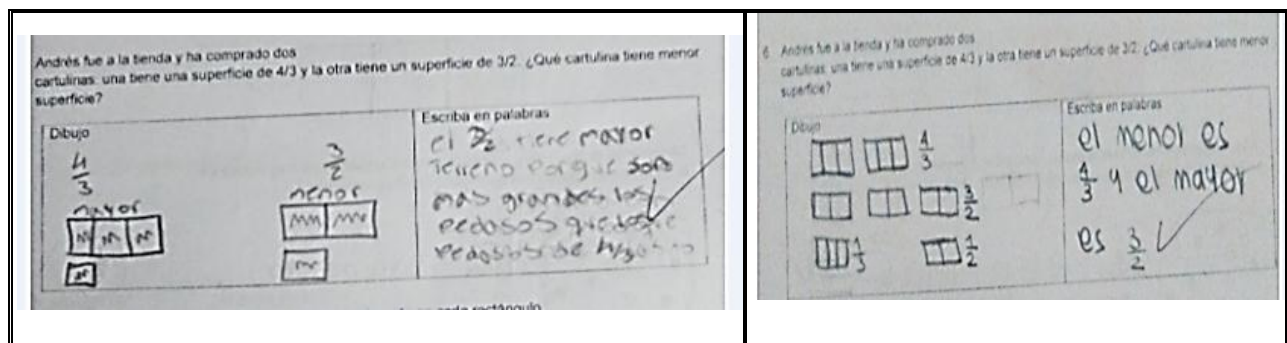 Andrés fue a la tienda y ha comprado dos
cartulinas: una tiene una superficie de 4/3 y la otra tiene un superficie de 3/2. ¿Qué cartulina tiene menor
superficie?
Dibujo
4/3
mayor
3/2
menor
Escriba en palabras
el 3/2 tiene mayor
Terreno porque son
mas grandes los
pedosos que los
pedosos de
6 Andrés fue a la tienda y ha comprado dos
cartulinas: una tiene una superficie de 4/3 y la otra tiene un superficie de 3/2. ¿Qué cartulina tiene menor
superficie?
Dibujo
4/3
3/2
1/3
1/2
Escriba en palabras
el menor es
4/3 y el mayor
es 3/2